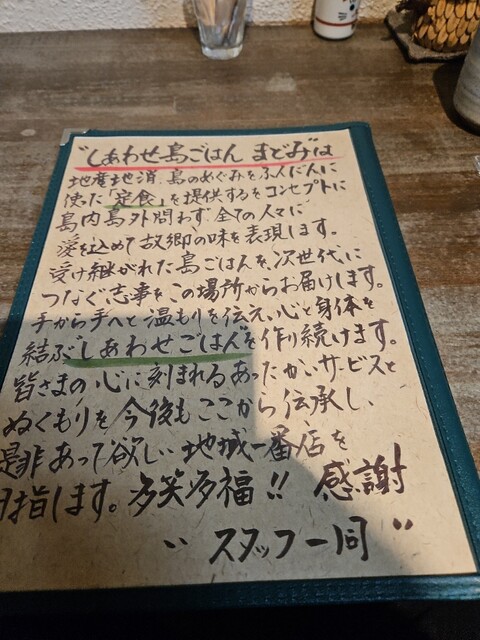 "しあわせ島ごはん まどみ"は
地産地消、島のめぐみをふんだんに
使った「定食」を提供するをコンセプトに
島内島外問わず、全ての人々に
愛を込めて故郷の味を表現します。
受け継がれた島ごはんを、次世代に
つなぐ志事をこの場所からお届けします。
手から手へと温もりを伝え、心と身体を
結ぶ"しあわせごはん"を作り続けます。
皆さまの心に刻まれるあったかいサービスと
ぬくもりを今後もここから伝承し、
是非あって欲しい地域一番店を
目指します。多笑多福!! 感謝
"スタッフ一同"